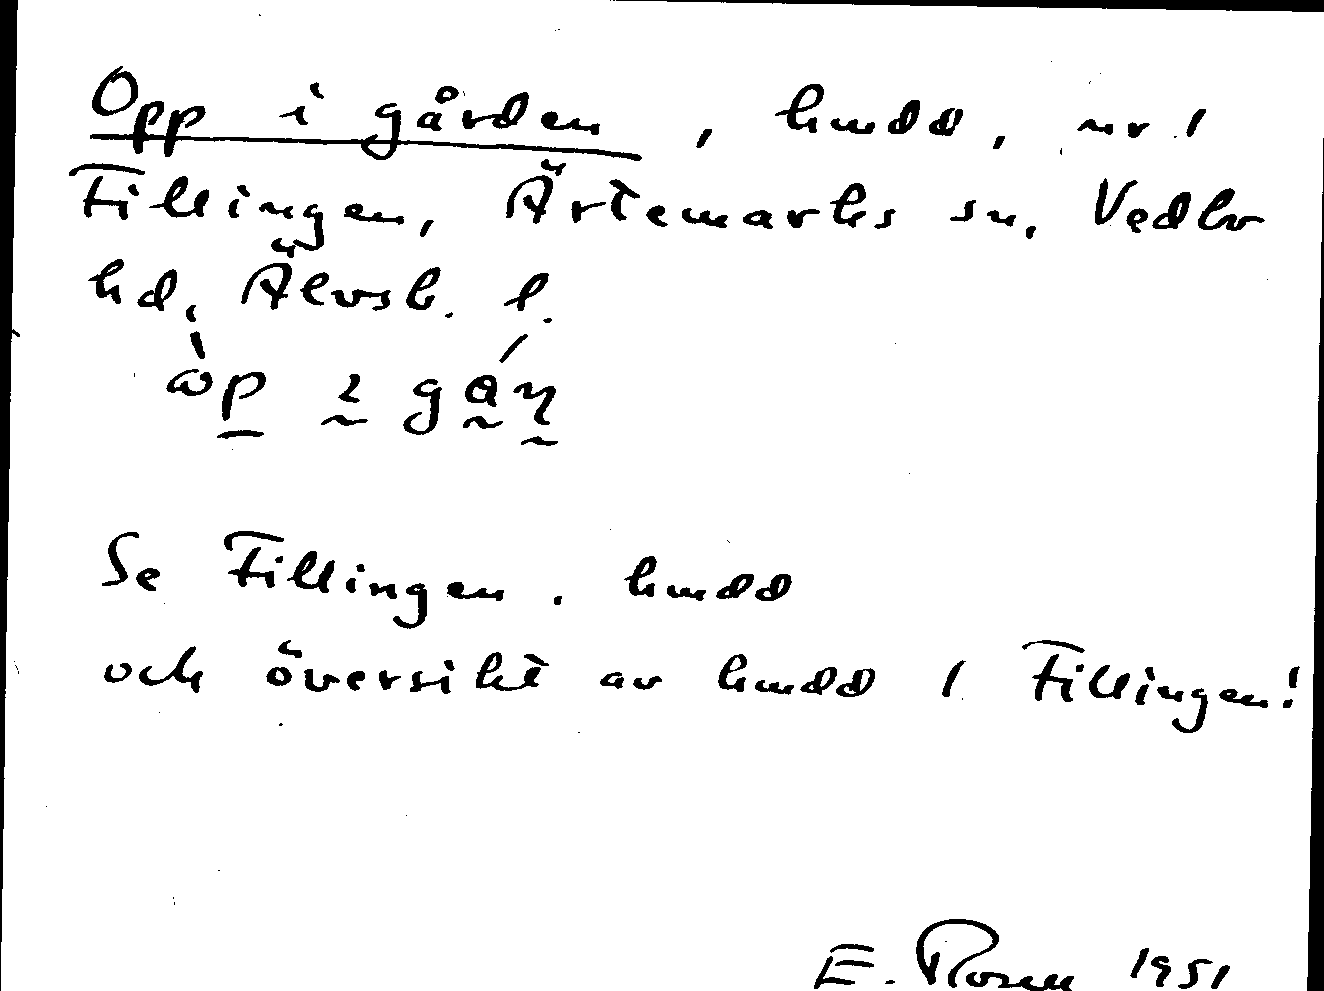 Opp i gården, hmdd, nr 1
Fillingen, Ärtemarks sn, Vedbo
hd, Älvsb. l.
Se Fillingen. hmdd
och översikt av hmdd 1 Fillingen!
E. Rosen 1951